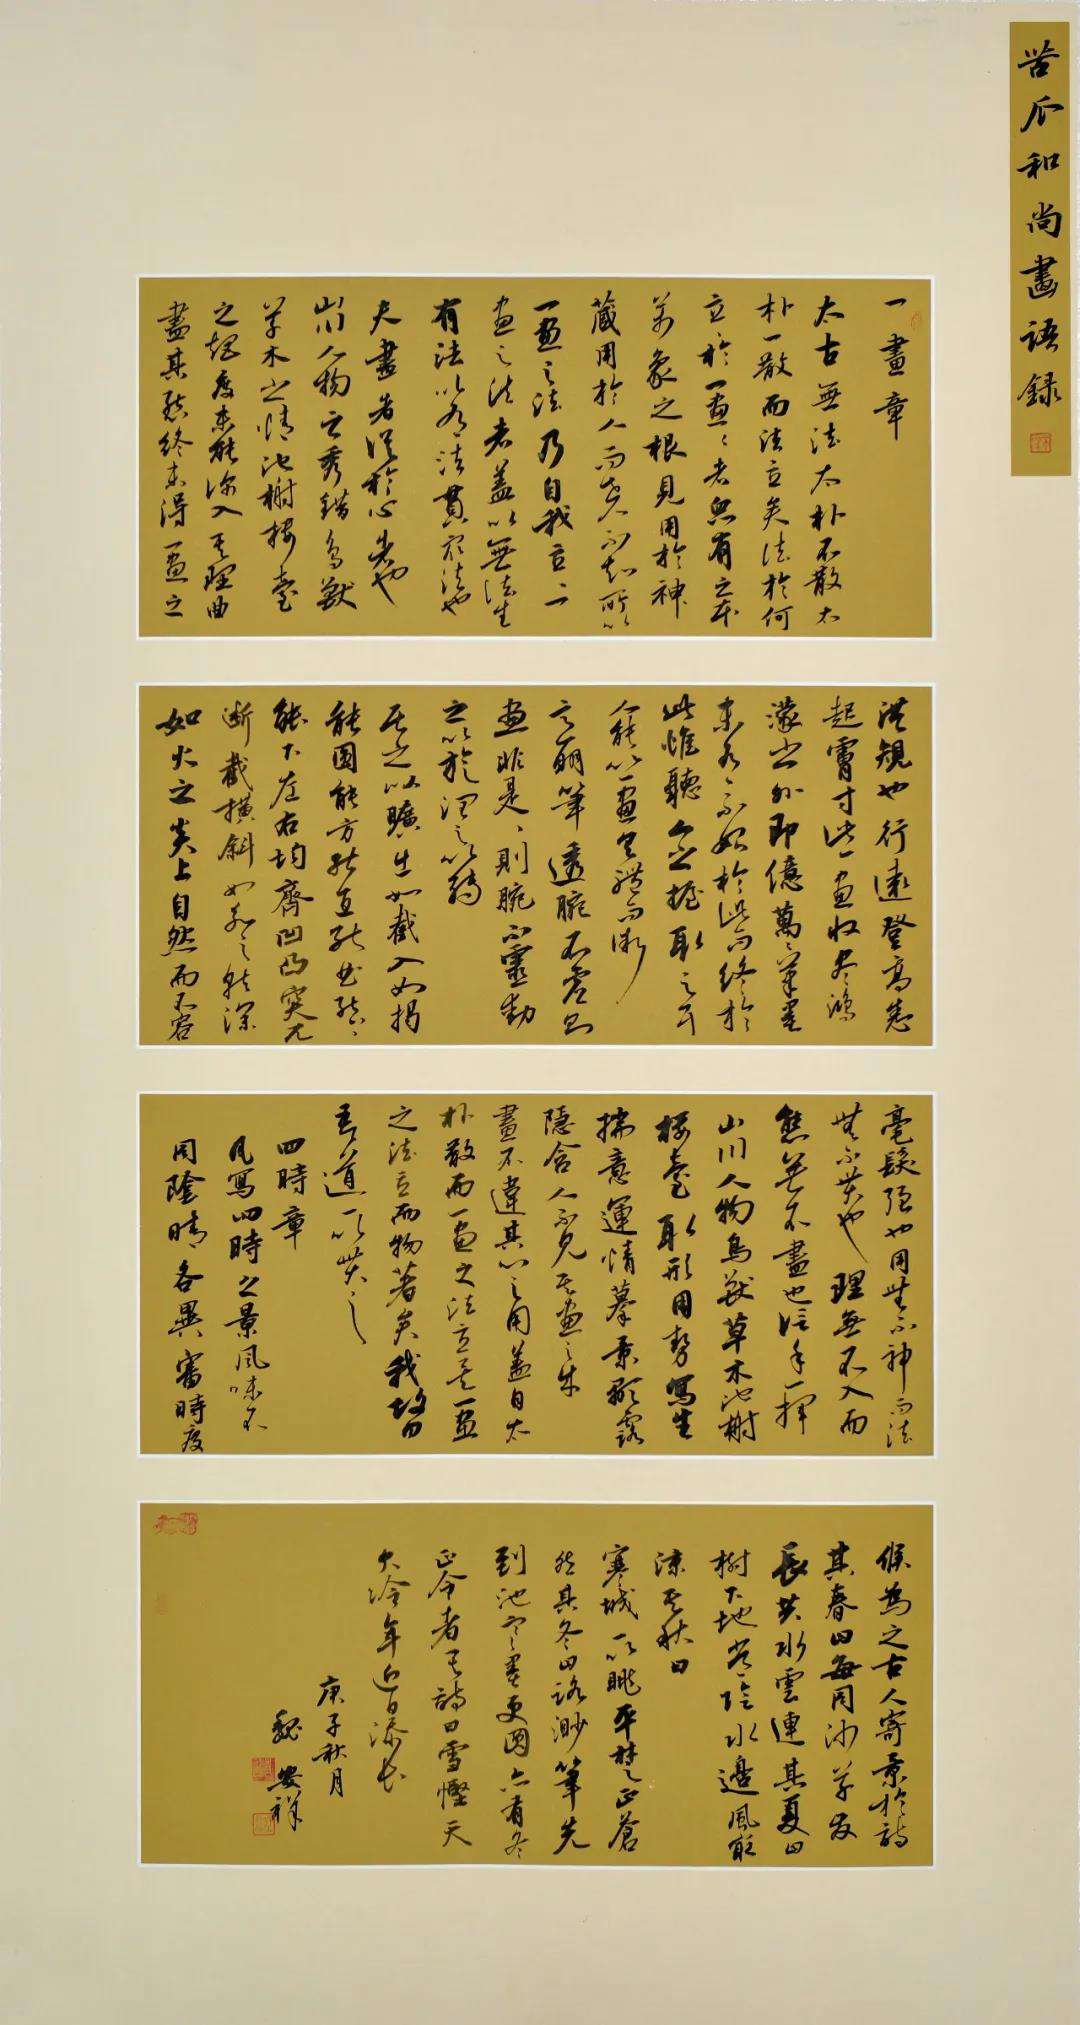 苦瓜和尚畫語録
一畫章
太古無法太朴不散太
朴一散而法立矣法於何
立於一畫々者衆有之本
萬象之根見用於神
藏用於人而世人不知所以
一畫之法乃自我立一
畫之法者蓋以無法生
有法以有法貫衆法也
夫畫者從於心者也
山川人物之秀錯鳥獸
草木之情池榭樓臺
之矩度未能深入其理曲
盡其態終未得一畫之
洪規也行遠登高悉
起膚寸此一畫收盡鴻
濛之外即億萬々筆墨
未有不始於此而終於
此惟聽人之握取之耳
人能以一畫具體而微
意明筆透腕不虛則
畫非是々則腕不靈動
之以旋潤之以轉
居之以曠出如截入如揭
能圓能方能直能曲能上
能下左右均齊凹凸突兀
斷截橫斜如水之就深
如火之炎上自然而不容
毫髮强也用無不神而法
無不貫也理無不入而
態無不盡也信手一揮
山川人物鳥獸草木池榭
樓臺取形用勢寫生
揣意運情摹景顯露
隱含人不見其畫之成
畫不違其心之用蓋自太
朴散而一畫之法立矣一畫
之法立而物著矣我故曰
吾道一以貫之
四時章
凡寫四時之景風味不
同陰晴各異審時度
候為之古人寄景於詩
其春曰每同沙草發
長共水雲連其夏曰
樹下地常陰水邊風最
涼其秋曰
寒城一以眺平楚正蒼
然其冬曰路渺筆先
到池寒墨更圓亦有冬
正令者其詩曰雪慳天
欠冷年近日添長
庚子秋月
魏安祥